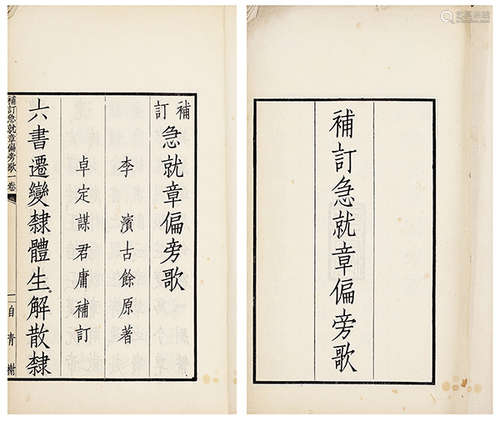 補訂急就章偏旁歌
補訂
急就章偏旁歌
李濱古餘原著
卓定謀君庸補訂
六書遷變隸體生解散隸
補訂急就章偏旁歌一卷
一
自青榭